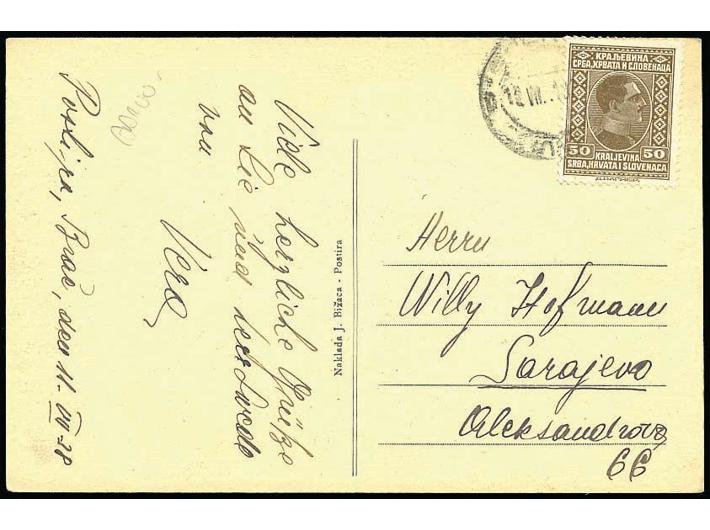 Postira, Brač, den 11. VII 28
Viele herzliche Grüße
an Sie und
von
Vera
Naklada J. Bižaca - Postira
КРАЉЕВИНА
СРБА, ХРВАТА И СЛОВЕНАЦА
50 50
KRALJEVINA
SRBA, HRVATA I SLOVENACA
Herrn
Willy Hofmann
Sarajevo
Aleksandrova
66